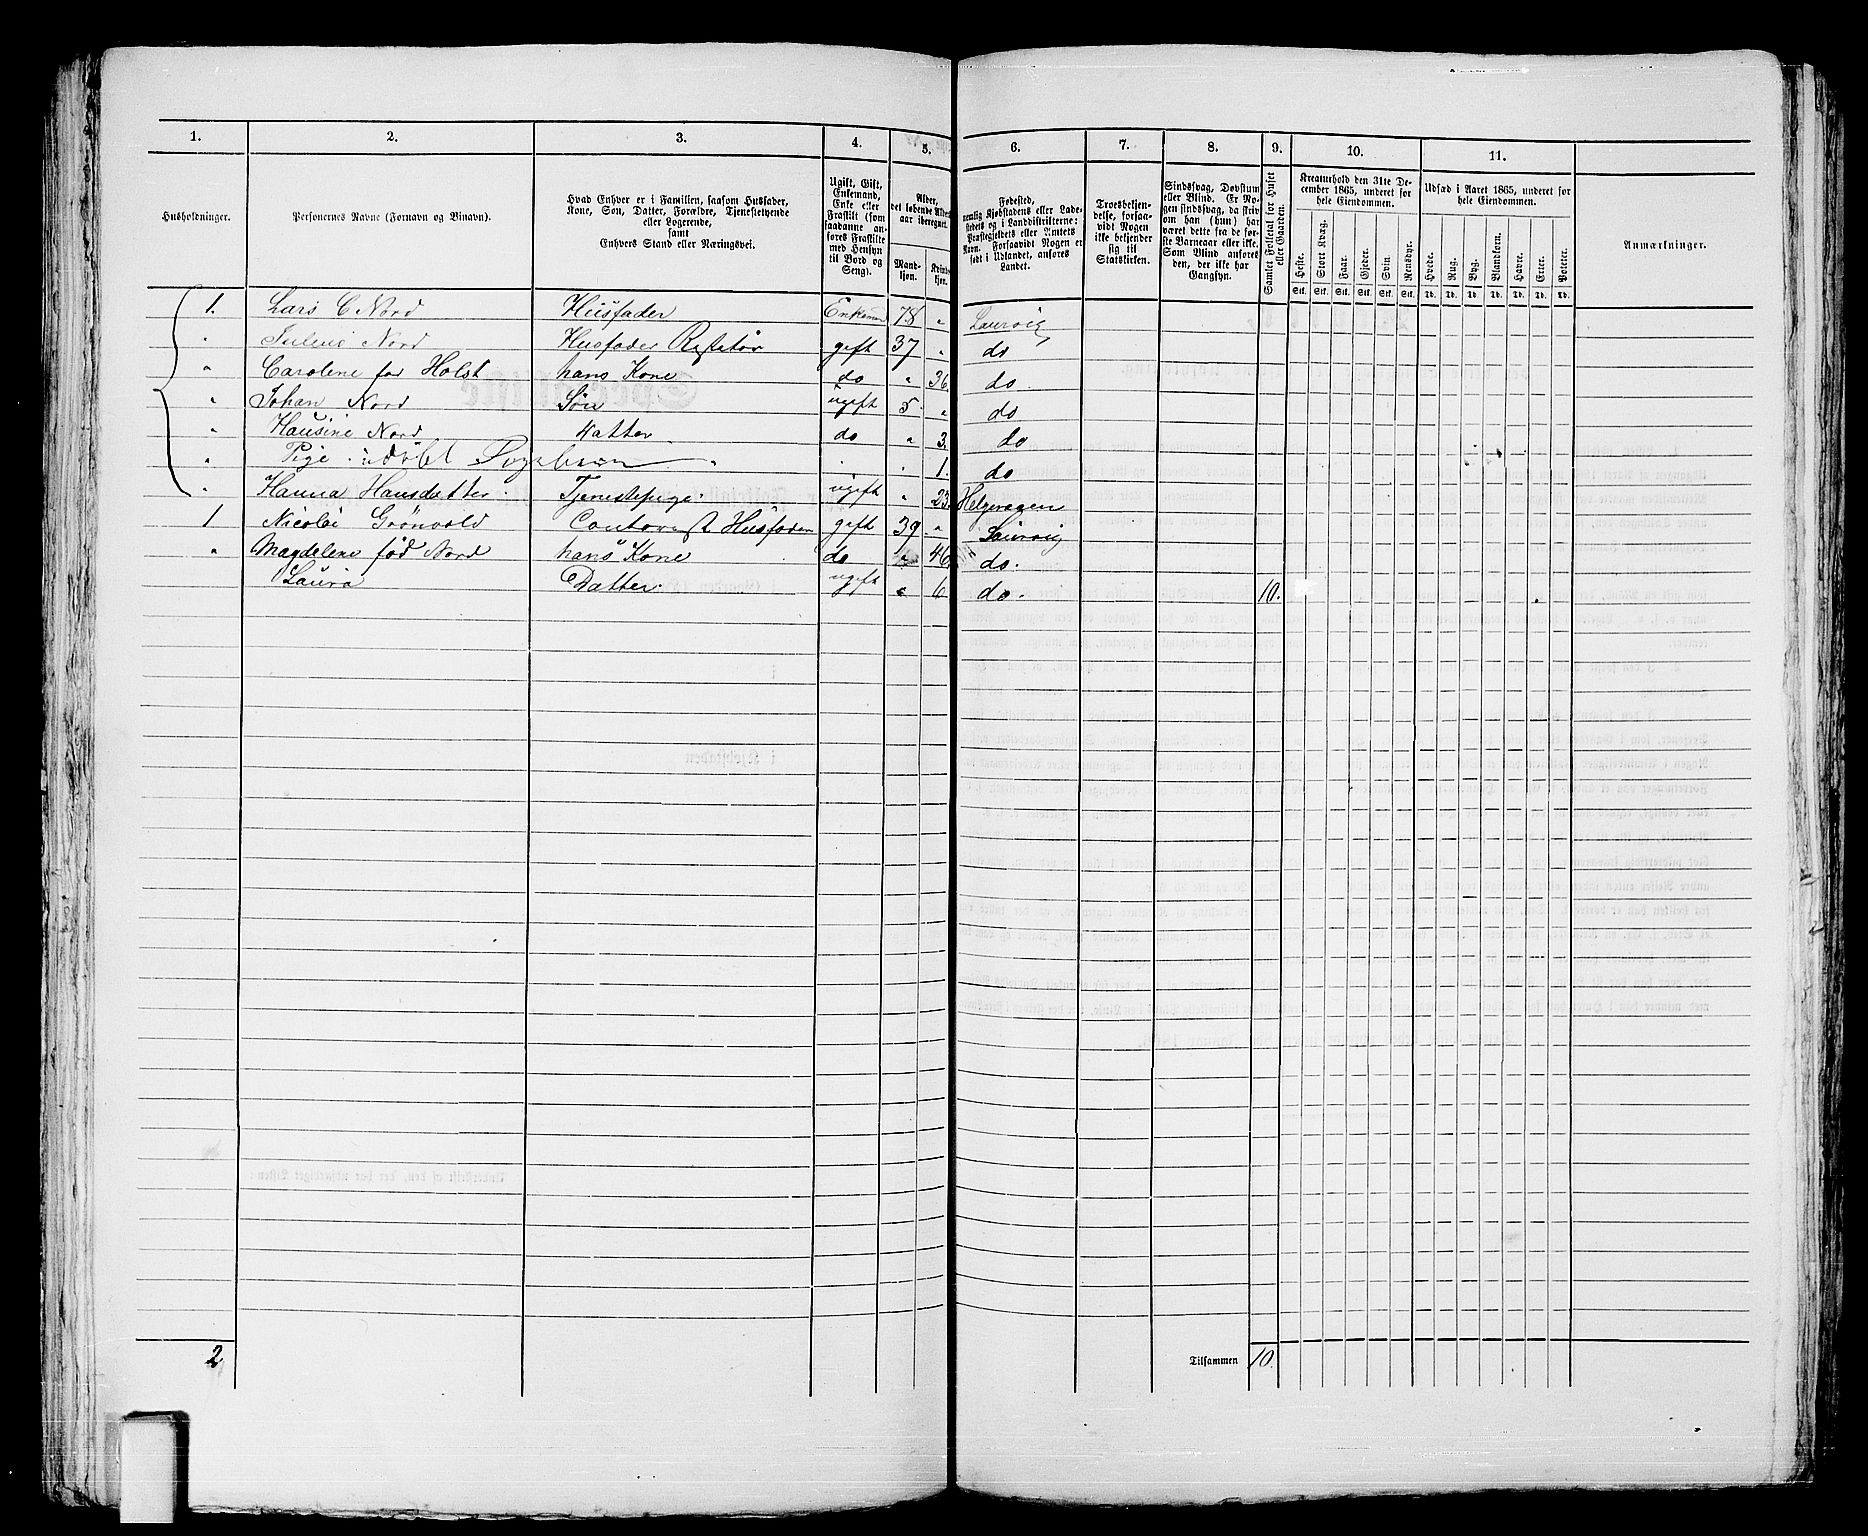 1. 2. 3. 4. 5. 6. 7. 8. 9. 10. 11.
Husholdninger.
Personernes Navne (Fornavn og Binavn).
Hvad Enhver er i Familien, saasom Husfader,
Kone, Søn, Datter, Forældre, Tjenestetyende
eller Logerende,
samt
Enhvers Stand eller Næringsvei.
Ugift, Gift,
Enkemand,
Enke eller
Fraskilt (som
saadanne an-
føres Fraskilte
med Hensyn
til Bord og
Seng).
Alder,
det løbende Alders-
aar iberegnet.
Mand-
kjøn.
Kvinde-
kjøn.
Fødested,
nemlig Kjøbstadens eller Lade-
stedets og i Landdistrikterne:
Præstegjeldets eller Amtets
Navn. Forsaavidt Nogen er
født i Udlandet, anføres
Landet.
Troesbekjen-
delse, forsaa-
vidt Nogen
ikke bekjender
sig til
Statskirken.
Sindssvag, Døvstum
eller Blind. Er No-
gen sindssvag, da skriv
om han (hun) har
været dette fra de før-
ste Barneaar eller ikke.
Som Blind anføres
den, der ikke har
Gangsyn.
Samlet Folketal for Huset
eller Gaarden.
Kreaturhold den 31te De-
cember 1865, underet for
hele Eiendommen.
Heste. Stort Kvæg. Faar. Gjeder. Svin. Rensdyr.
Stk. Stk. Stk. Stk. Stk. Stk.
Udsæd i Aaret 1865, underet for
hele Eiendommen.
Hvede. Rug. Byg. Blandkorn. Havre. Erter. Poteter.
Td. Td. Td. Td. Td. Td. Td.
Anmærkninger.
1. Lars C Nord Husfader Enkeman 78 " Laurvig
" Julius Nord Husfader gift 37 " do
" Carolene Holst hans Kone do " 36 do
" Johan Nord Søn ugift 5 " do
" Hansine Nord Datter do " 3. do
" Pige udøbt " " 1. do
" Hanna Hansdatter. Tjenestepige. ugift " 23. Helgeroaen
1 Nicolai Grönvold Contorist Husfader gift 39 " Laurvig
" Magdelene fød Nord hans Kone do " 46 do.
Laura Datter. ugift " 6 do. 10.
2 Tilsammen 10.